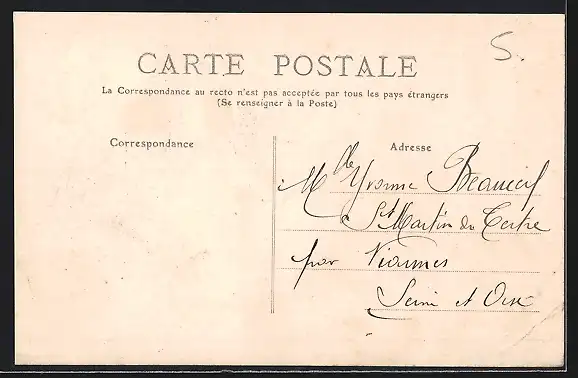 S.
CARTE POSTALE
La Correspondance au recto n'est pas acceptée par tous les pays étrangers
(Se renseigner à la Poste)
Correspondance
Adresse
Mlle Yvonne
à St Martin du Tertre
par Viarmes
Seine et Oise